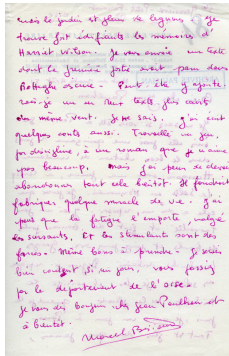 mais le jardin est plein de légumes. Je
trouve fort édifiants les mémoires d'
Harriet Wilson. Je vous envoie un texte
dont la première partie avait paru dans
Botteghe oscure. Peut-être y ajoute
rai-je un ou deux textes plus courts
du même vent. Je ne sais. J'ai écrit
quelques contes aussi. Travaillé un peu,
par discipline, à un roman que je n'aime
pas beaucoup, mais j'ai peur de devoir
abandonner tout cela bientôt. Il faudrait
fabriquer quelque miracle de vie. J'ai
peur que la fatigue l'emporte, malgré
les suivants. Et les stimulants sont des
forces. Même bons à prendre. Je serais
bien content, si, un jour, vous passiez
par le département de l'Oise.
Je vous dis bonjour, chez Jean Paulhan et
à bientôt.
Marcel